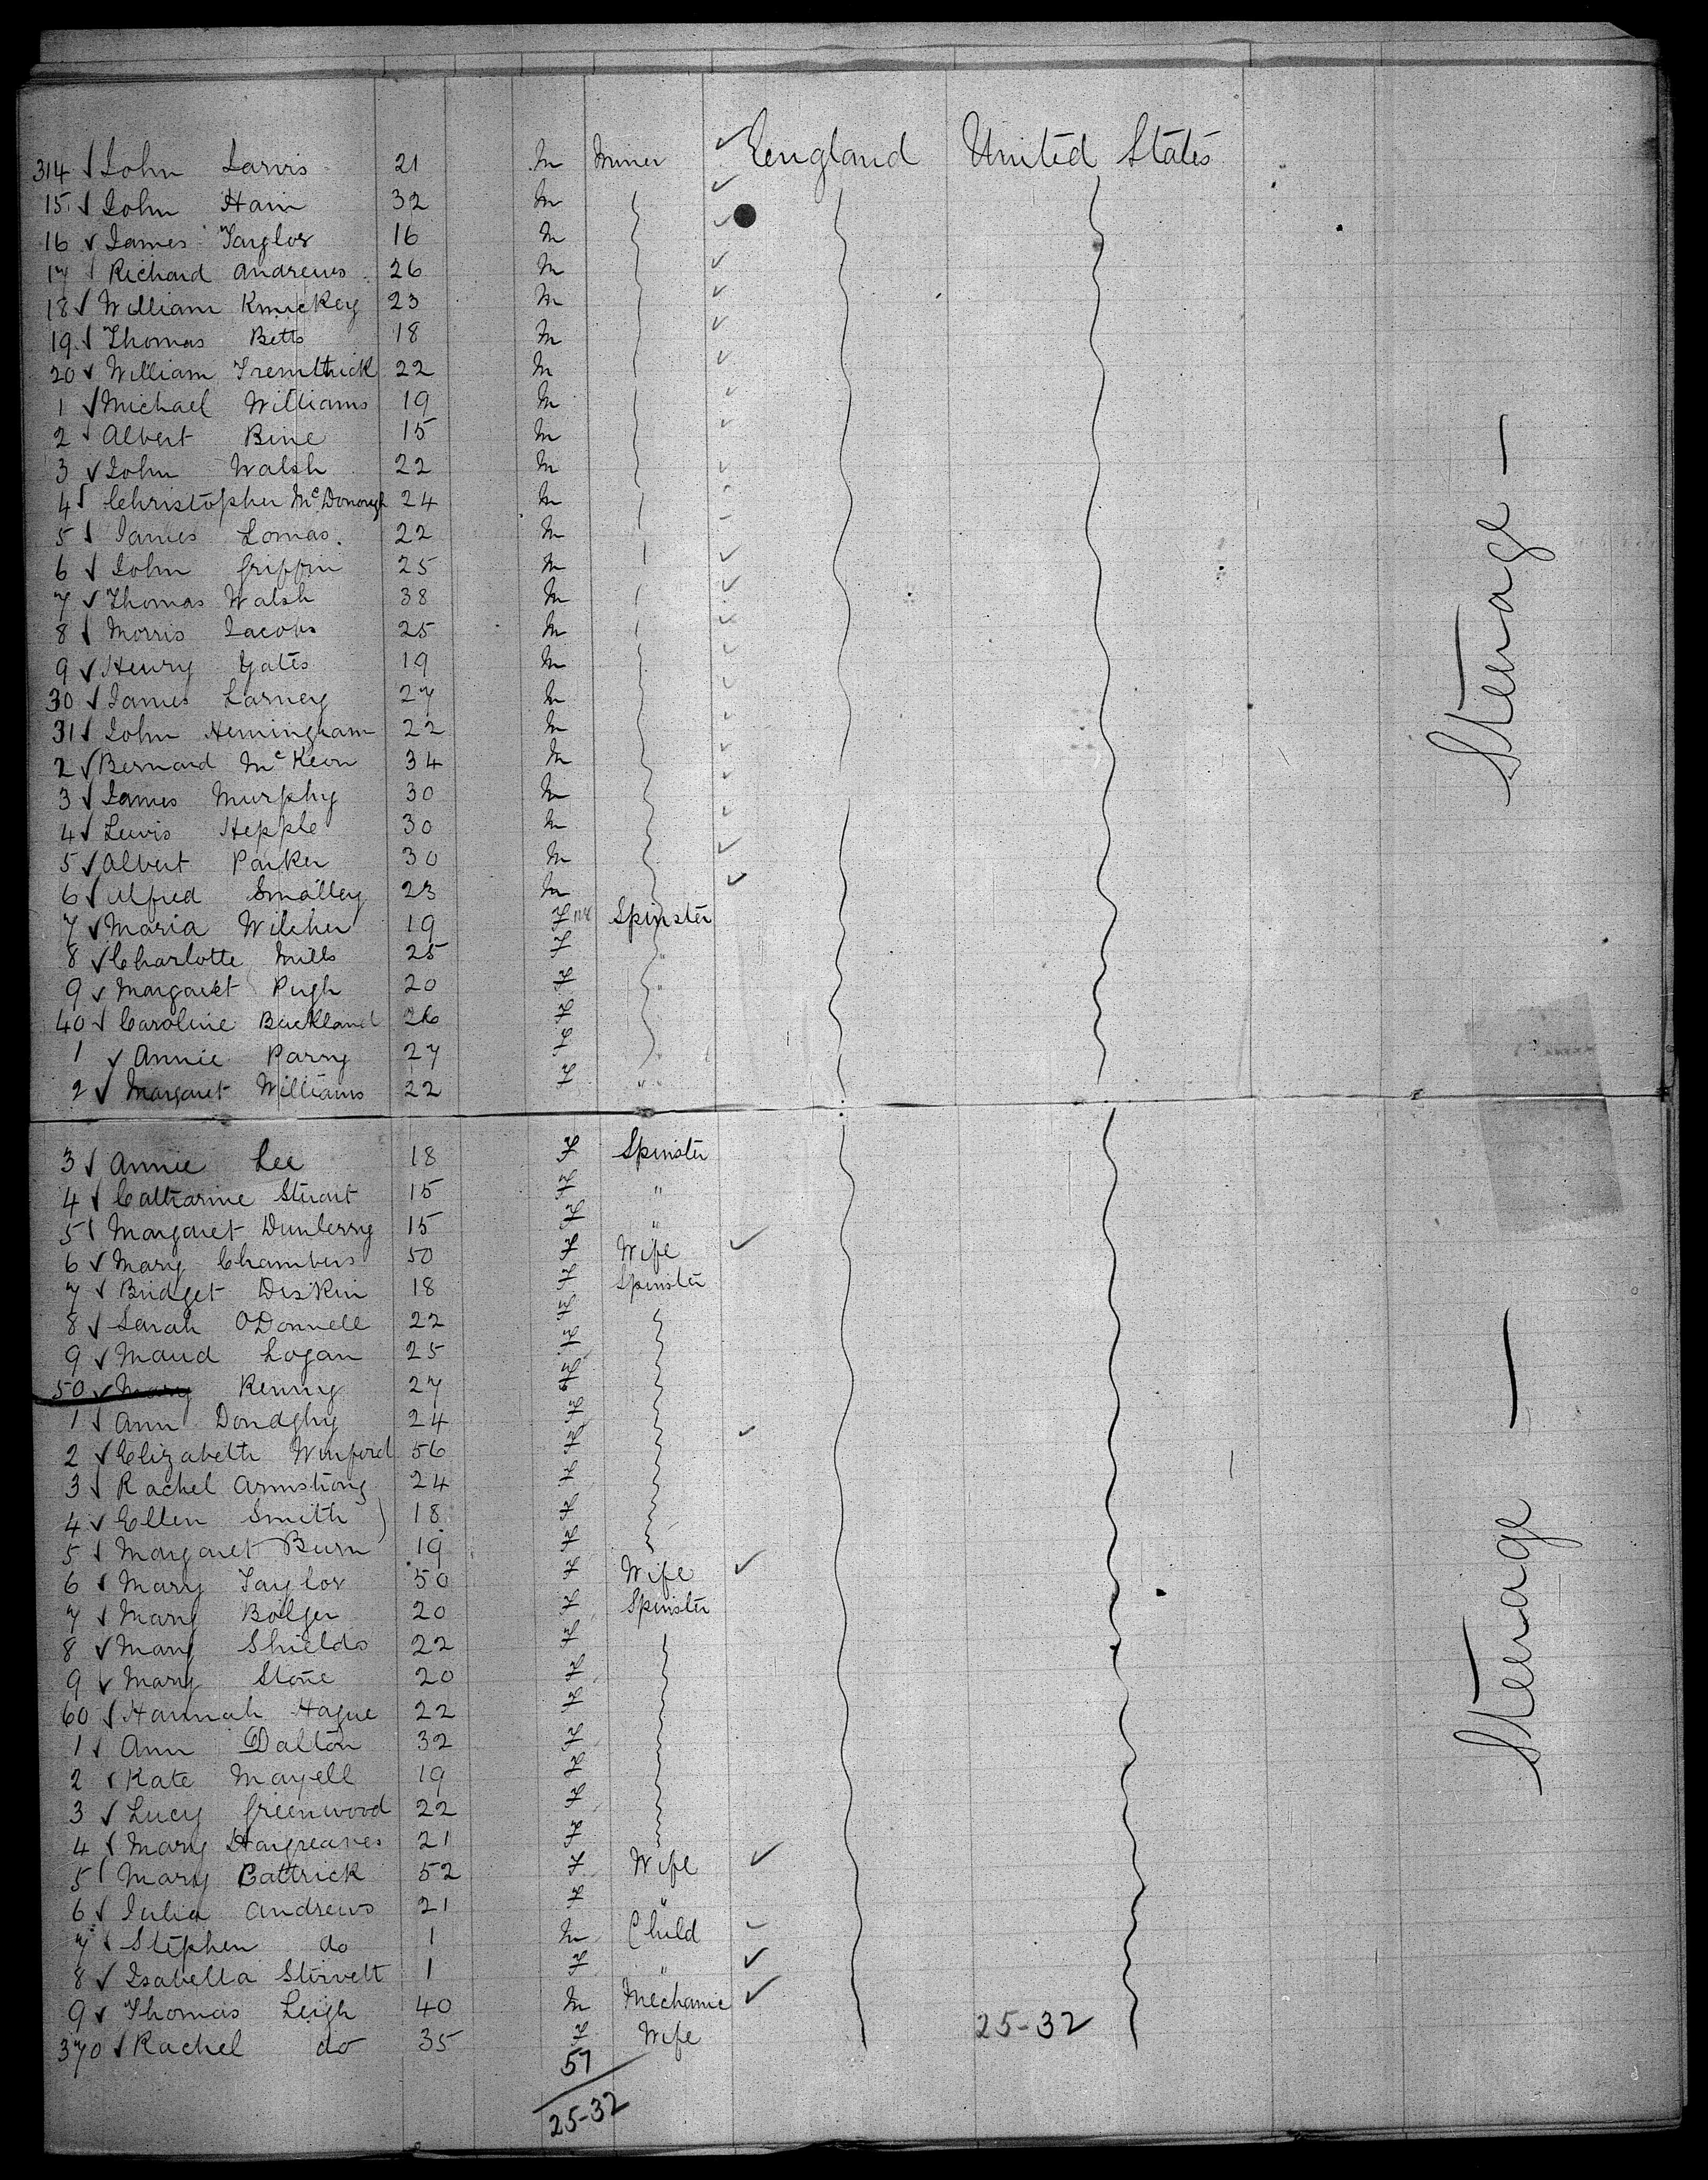 314 John Jarvis 21 M Miner England United States
15 John Ham 32 M
16 James Taylor 16 M
17 Richard Andrews 26 M
18 William Kmickey 23 M
19 Thomas Betts 18 M
20 William Trembthick 22 M
1 Michael Williams 19 M
2 Albert Bine 15 M
3 John Walsh 22 M
4 Christopher McDonough 24 M
5 James Lomas. 22 M
6 John Griffin 25 M
7 Thomas Walsh 38 M
8 Morris Jacobs 25 M
9 Henry Yates 19 M
30 James Larney 27 M
31 John Hemingham 22 M
2 Bernard McKeon 34 M
3 James Murphy 30 M
4 Lewis Hepple 30 M
5 Albert Parker 30 M
6 Alfred Smalley 23 M
7 Maria Wilcher 19 F Spinster
8 Charlotte Mills 25 F "
9 Margaret Pugh 20 F "
40 Caroline Buckland 26 F
1 Annie Parry 27 F
2 Margaret Williams 22 F "
Steerage —
3 Annie Lee 18 F Spinster
4 Catharine Stuart 15 F "
5 Margaret Dunberry 15 F "
6 Mary Chambers 50 F Wife
7 Bridget Diskin 18 F Spinster
8 Sarah ODonnell 22 F
9 Maud Logan 25 F
50 Mary Kenny 27 F
1 Ann Donoghy 24 F
2 Elizabeth Winford 56 F
3 Rachel Armstrong 24 F
4 Ellen Smith 18 F
5 Margaret Burn 19 F
6 Mary Taylor 50 F Wife
7 Mary Bolger 20 F Spinster
8 Mary Shields 22 F
9 Mary Stone 20 F
60 Hannah Hague 22 F
1 Ann Dalton 32 F
2 Kate Mayell 19 F
3 Lucy Greenwood 22 F
4 Mary Hargreaves 21 F
5 Mary Battrick 52 F Wife
6 Julia Andrews 21 F "
7 Stephen do 1 M Child
8 Isabella Stirvett 1 F "
9 Thomas Leigh 40 M Mechanic
370 Rachel do 35 F Wife
25-32
57
25-32
Steerage —